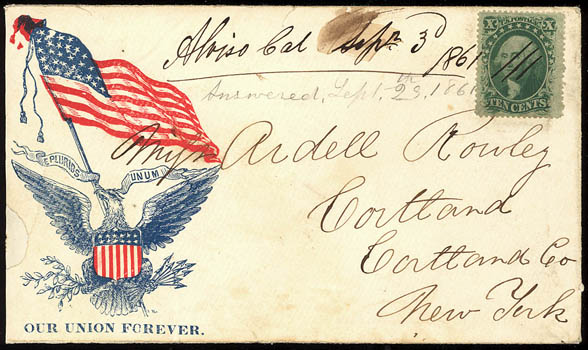 Alviso Cal Sepr 3d 1861
Answered, Sept. 23th, 1861
X U.S. POSTAGE X
TEN CENTS
E PLURIBUS UNUM
Ardell Rowley
Cortland
Cortland Co
New York
OUR UNION FOREVER.